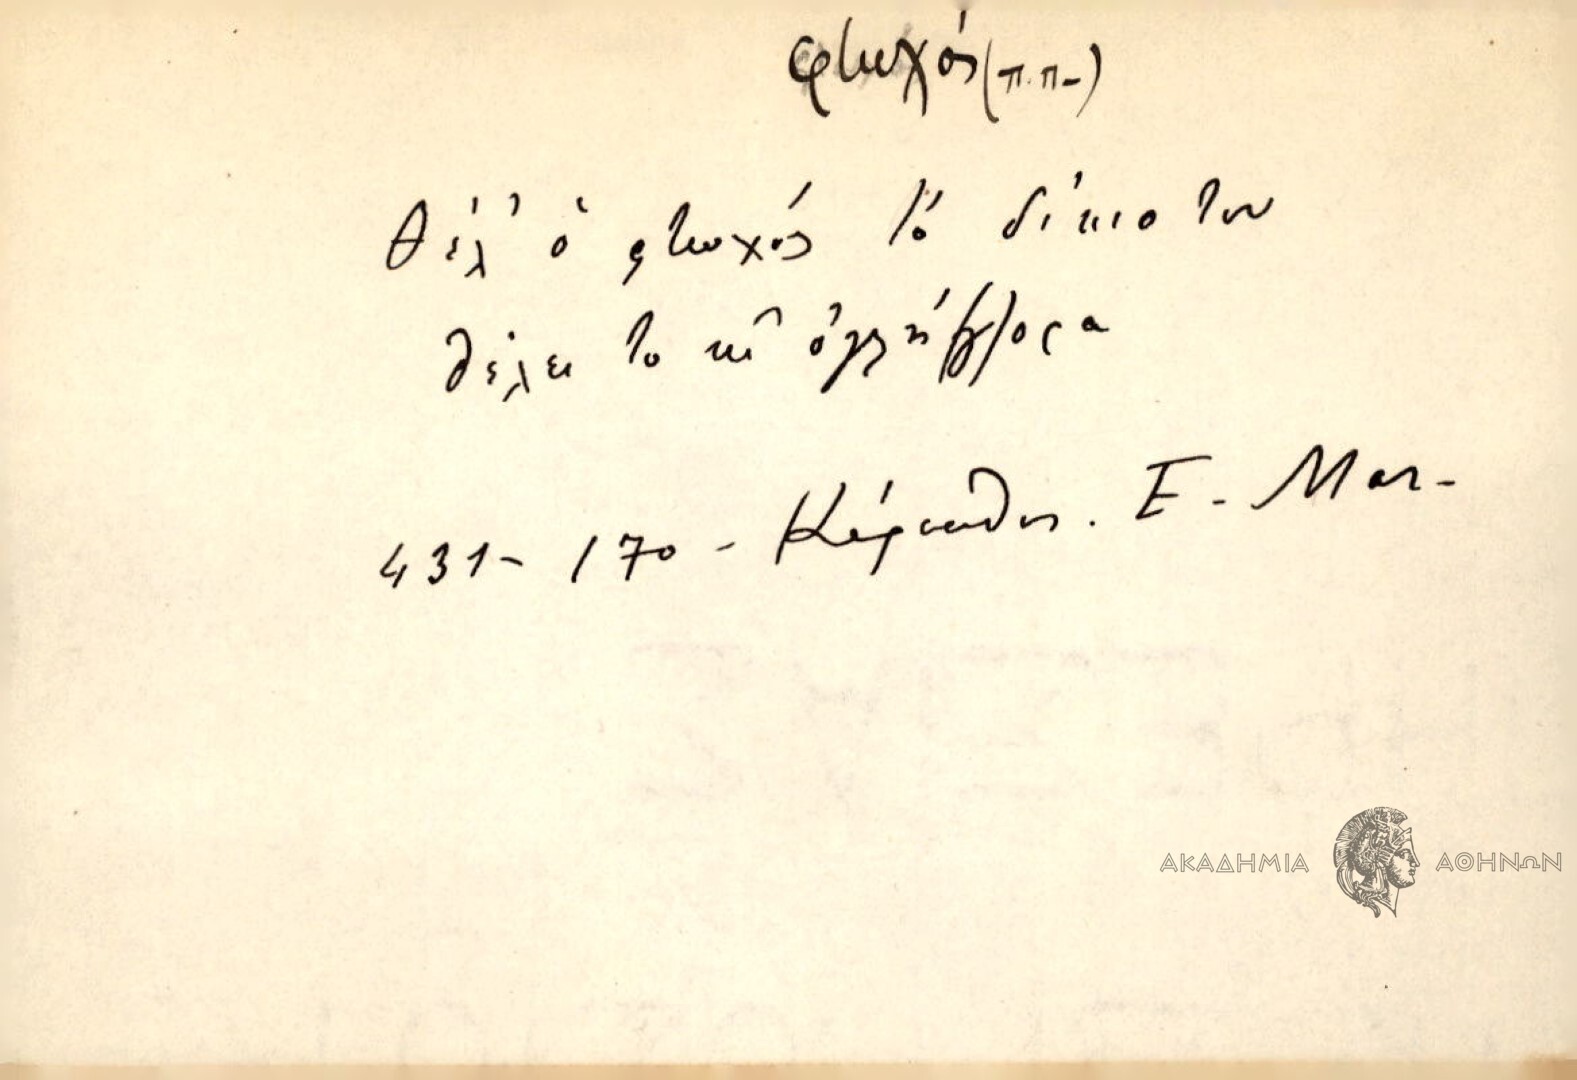 φτωχός (π.π.)
θέλ' ὁ φτωχός τό δίκιο του
θέλει το κι
431- 170 - Κάρπαθος. Ε. Μαν.
ΑΚΑΔΗΜΙΑ ΑΘΗΝΩΝ